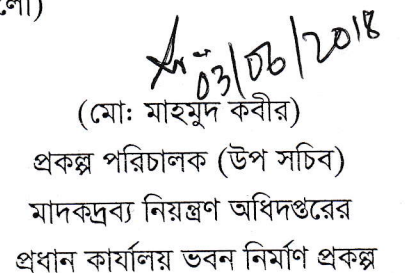 03/06/2018
(মো: মাহমুদ কবীর)
প্রকল্প পরিচালক (উপ সচিব)
মাদকদ্রব্য নিয়ন্ত্রণ অধিদপ্তরের
প্রধান কার্যালয় ভবন নির্মাণ প্রকল্প